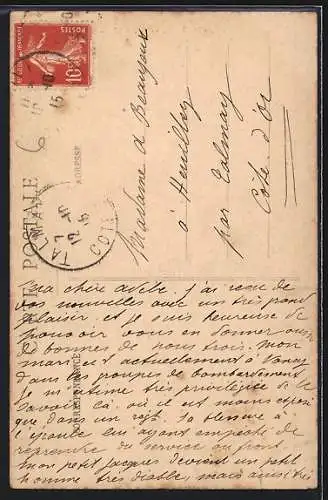 POSTES
10
CARTE POSTALE
CORRESPONDANCE
ADRESSE
TALMAY
7 - 10
12
15
COTE
6
Madame A
à Heuilley
par Talmay
Cote d'or
Ma chère Adèle. J'ai reçu de
vos nouvelles avec un très grand
plaisir et je suis heureuse de
pouvoir vous en donner aussi
de bonnes de nous trois. Mon
mari est actuellement à
dans les groupes de bombardement
Je m'estime très privilégiée de le
savoir là, où il est moins exposé
que dans un sa blessure à
l'épaule lui ayant empêché de
reprendre du service au front.
mon petit Jacques devient un petit
homme très diable, mais aussi très